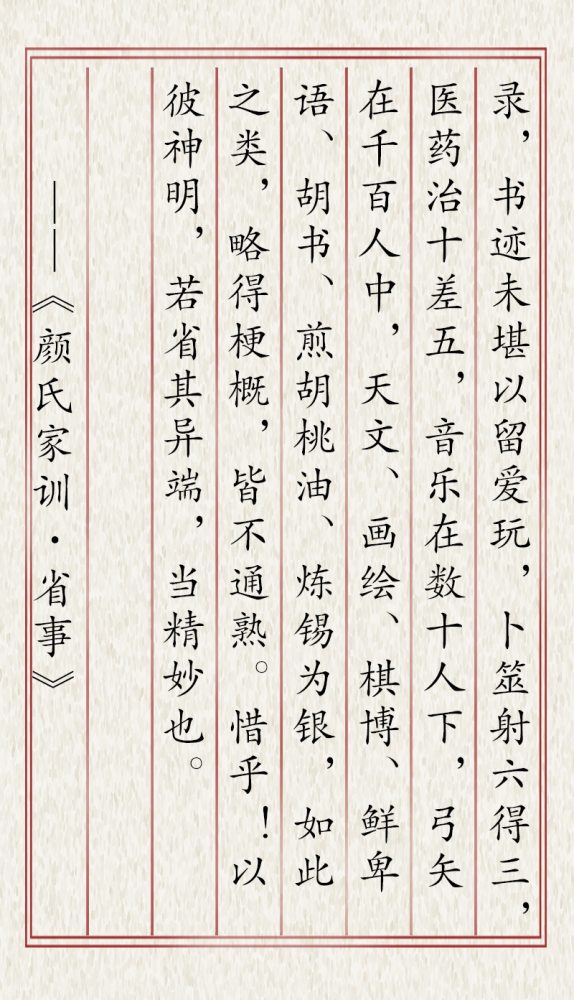 录，书迹未堪以留爱玩，卜筮射六得三，
医药治十差五，音乐在数十人下，弓矢
在千百人中，天文、画绘、棋博、鲜卑
语、胡书、煎胡桃油、炼锡为银，如此
之类，略得梗概，皆不通熟。惜乎！以
彼神明，若省其异端，当精妙也。
——《颜氏家训·省事》